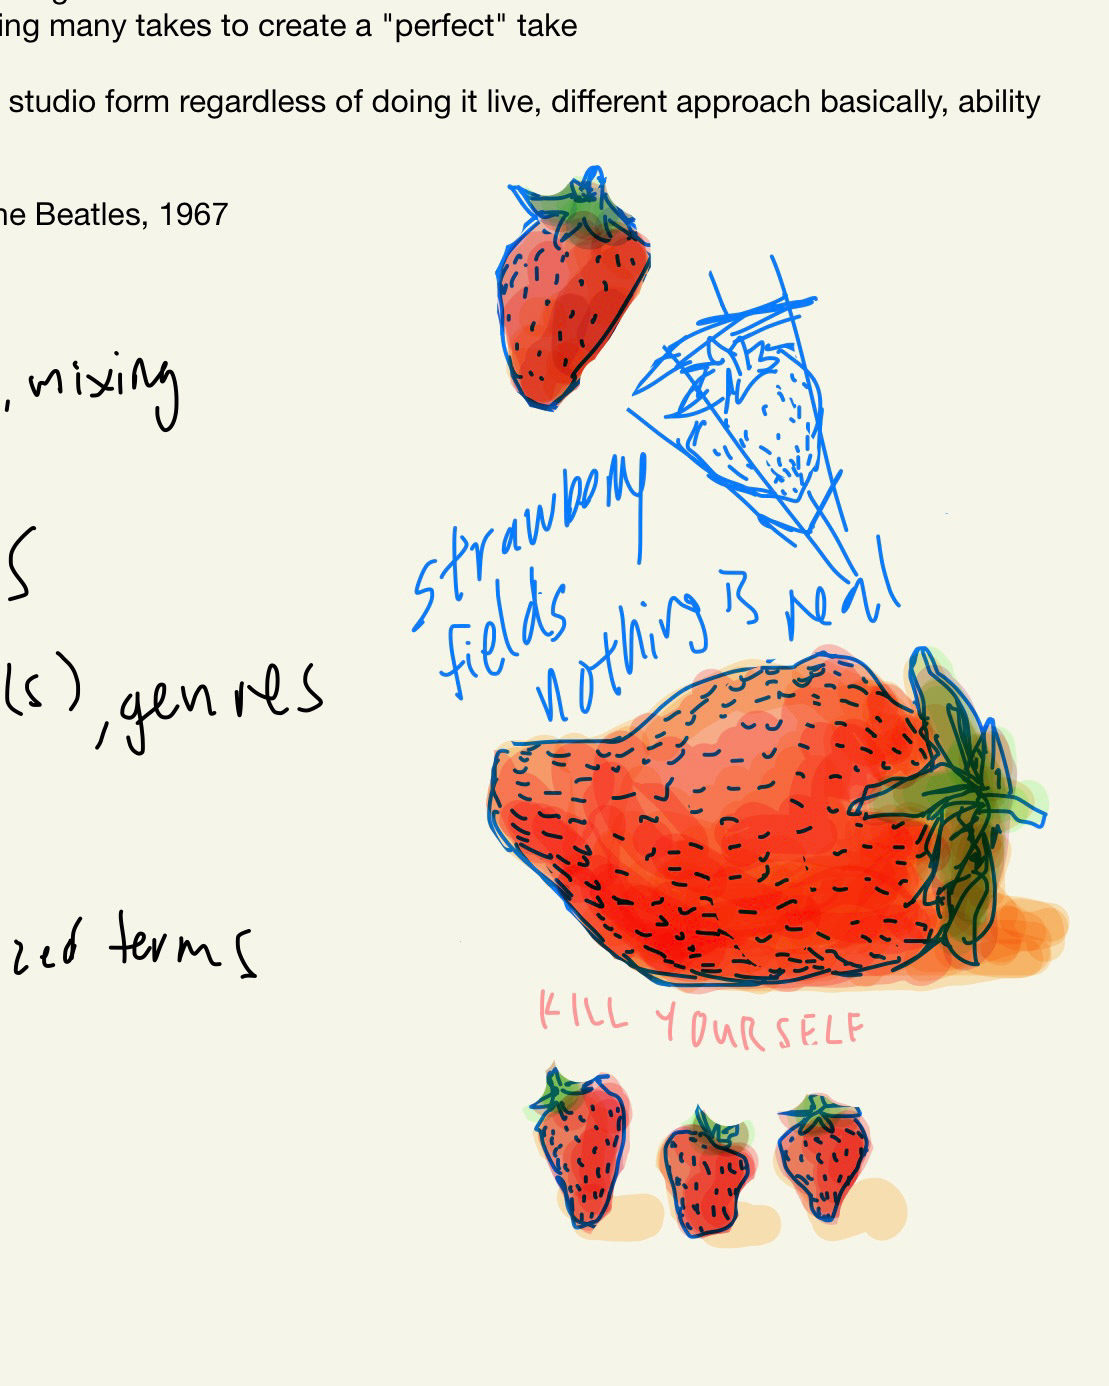 ing many takes to create a "perfect" take
studio form regardless of doing it live, different approach basically, ability
he Beatles, 1967
, mixing
strawberry
fields
nothing is real
s
(s), genres
zed terms
KILL YOURSELF